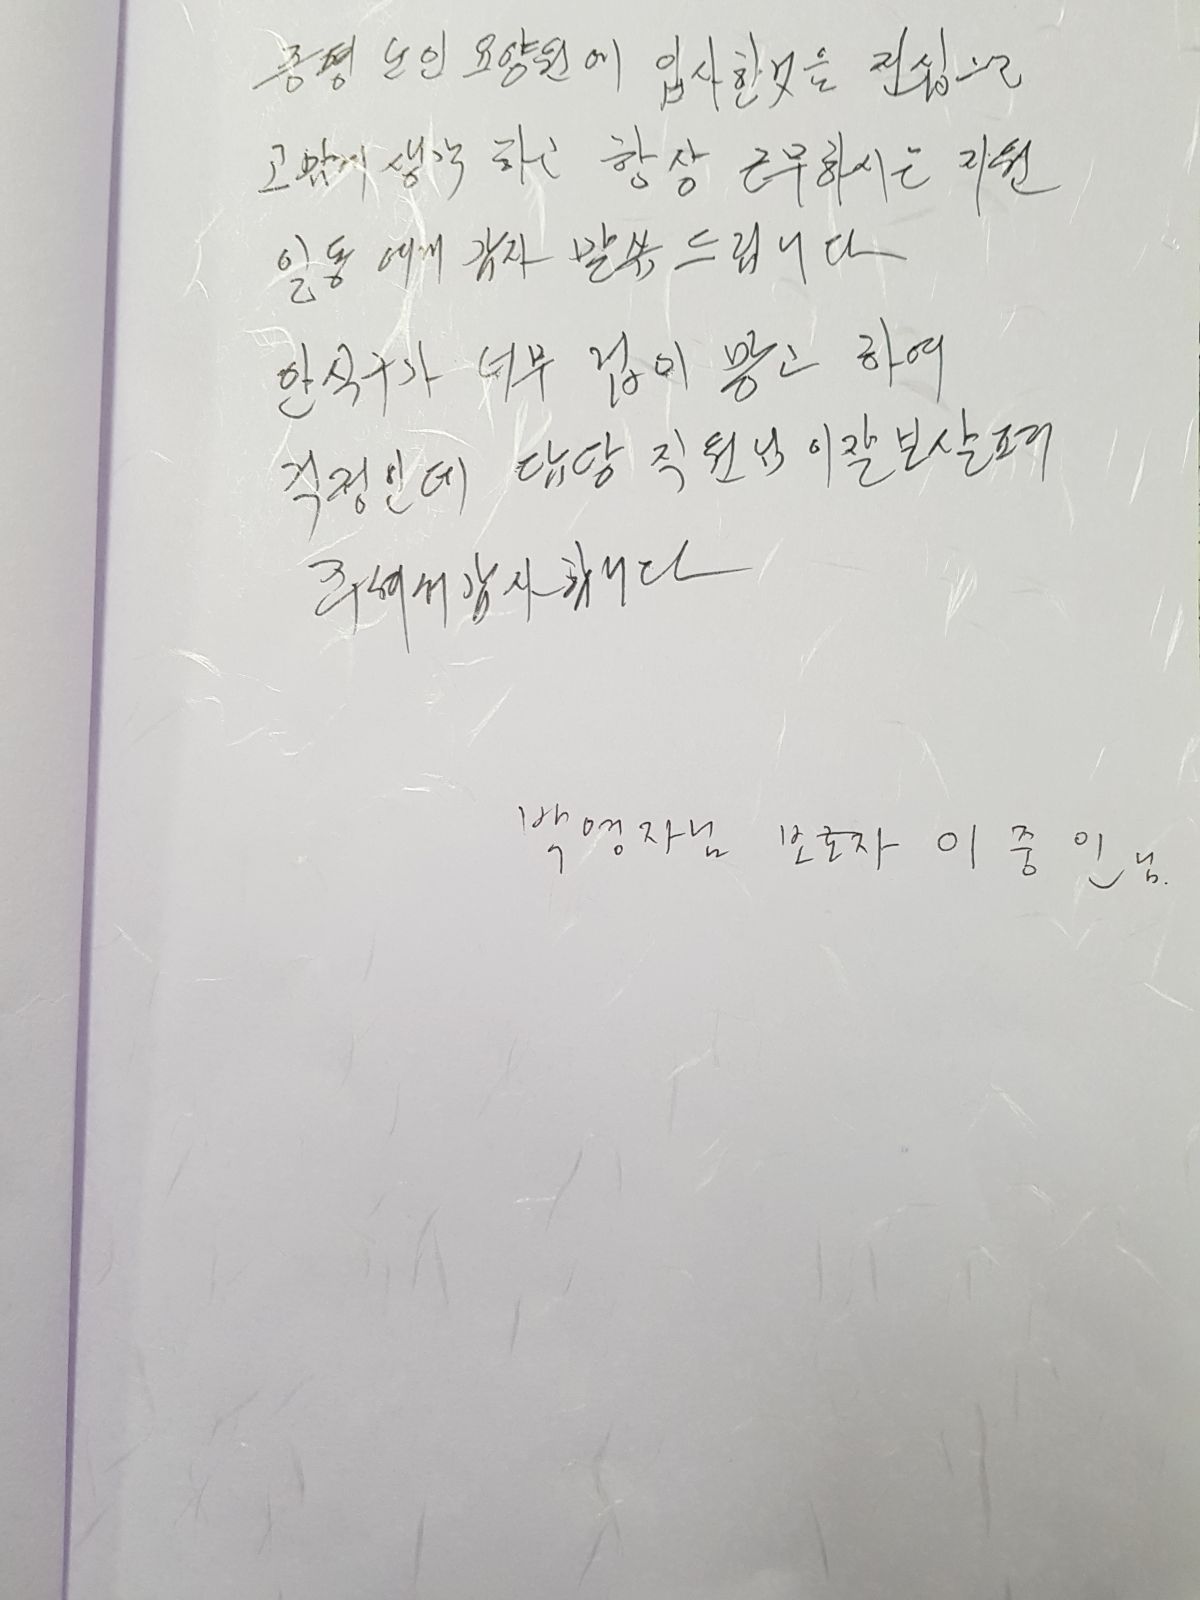 증평 노인 요양원에 입사한것을 진심으로
고맙게 생각 하고 항상 근무하시는 직원
일동 에게 감사 말씀 드립니다
안식구가 너무 겁이 많고 하여
걱정인데 담당 직원님 이잘보살펴
주셔서감사합니다
박영자님 보호자 이중인님.